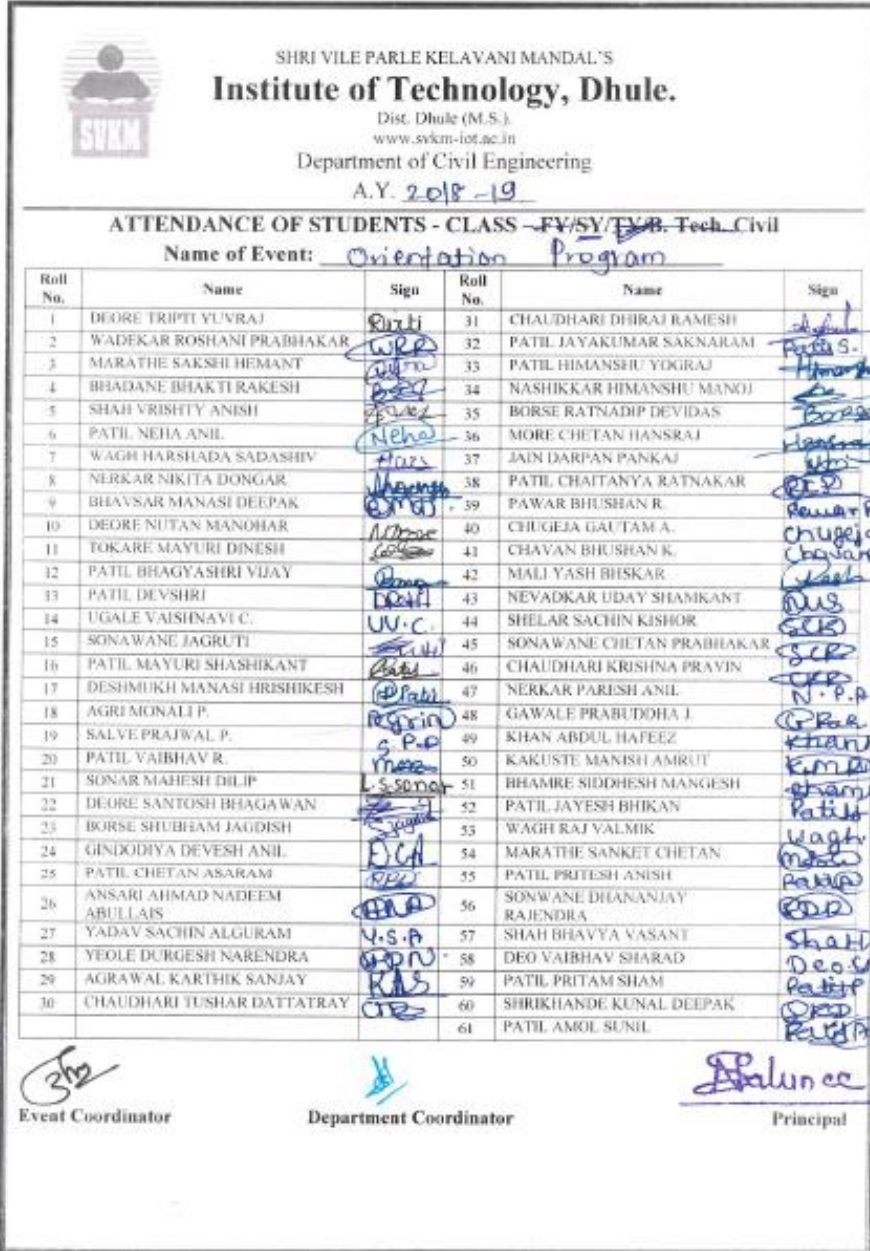 SVKM
SHRI VILE PARLE KELAVANI MANDAL'S
Institute of Technology, Dhule.
Dist. Dhule (M.S.).
www.svkm-iot.ac.in
Department of Civil Engineering
A.Y. 2018-19
ATTENDANCE OF STUDENTS - CLASS - FY/SY/TY/B. Tech. Civil
Name of Event: Orientation Program
Roll No. Name Sign Roll No. Name Sign
1 DEORE TRIPTI YUVRAJ 31 CHAUDHARI DHIRAJ RAMESH
2 WADEKAR ROSHANI PRABHAKAR WRR 32 PATIL JAYAKUMAR SAKNARAM Patil S.
3 MARATHE SAKSHI HEMANT 33 PATIL HIMANSHU YOGRAJ Himansh
4 BHADANE BHAKTI RAKESH 34 NASHIKKAR HIMANSHU MANOJ
5 SHAH VRISHTY ANISH 35 BORSE RATNADIP DEVIDAS Borse
6 PATIL NEHA ANIL Neha 36 MORE CHETAN HANSRAJ
7 WAGH HARSHADA SADASHIV 37 JAIN DARPAN PANKAJ
8 NERKAR NIKITA DONGAR 38 PATIL CHAITANYA RATNAKAR
9 BHAVSAR MANASI DEEPAK BMD 39 PAWAR BHUSHAN R.
10 DEORE NUTAN MANOHAR 40 CHUGEJA GAUTAM A. Chugeja
11 TOKARE MAYURI DINESH 41 CHAVAN BHUSHAN K. Chavan
12 PATIL BHAGYASHRI VIJAY 42 MALI YASH BHSKAR
13 PATIL DEVSHRI 43 NEVADKAR UDAY SHAMKANT NUS
14 UGALE VAISHNAVI C. UV.C. 44 SHELAR SACHIN KISHOR SCK
15 SONAWANE JAGRUTI 45 SONAWANE CHETAN PRABHAKAR SCP
16 PATIL MAYURI SHASHIKANT 46 CHAUDHARI KRISHNA PRAVIN
17 DESHMUKH MANASI HRISHIKESH 47 NERKAR PARESH ANIL N.P.A
18 AGRI MONALI P. 48 GAWALE PRABUDDHA J.
19 SALVE PRAJWAL P. S.P.P 49 KHAN ABDUL HAFEEZ Khan
20 PATIL VAIBHAV R. 50 KAKUSTE MANISH AMRUT
21 SONAR MAHESH DILIP L.S.sonar 51 BHAMRE SIDDHESH MANGESH
22 DEORE SANTOSH BHAGAWAN 52 PATIL JAYESH BHIKAN
23 BORSE SHUBHAM JAGDISH 53 WAGH RAJ VALMIK Wagh
24 GINDODIYA DEVESH ANIL 54 MARATHE SANKET CHETAN
25 PATIL CHETAN ASARAM 55 PATIL PRITESH ANISH
26 ANSARI AHMAD NADEEM ABULLAIS 56 SONWANE DHANANJAY RAJENDRA
27 YADAV SACHIN ALGURAM Y.S.A 57 SHAH BHAVYA VASANT Shah
28 YEOLE DURGESH NARENDRA 58 DEO VAIBHAV SHARAD Deo.S
29 AGRAWAL KARTHIK SANJAY KAS 59 PATIL PRITAM SHAM
30 CHAUDHARI TUSHAR DATTATRAY 60 SHRIKHANDE KUNAL DEEPAK
61 PATIL AMOL SUNIL
Event Coordinator Department Coordinator Principal